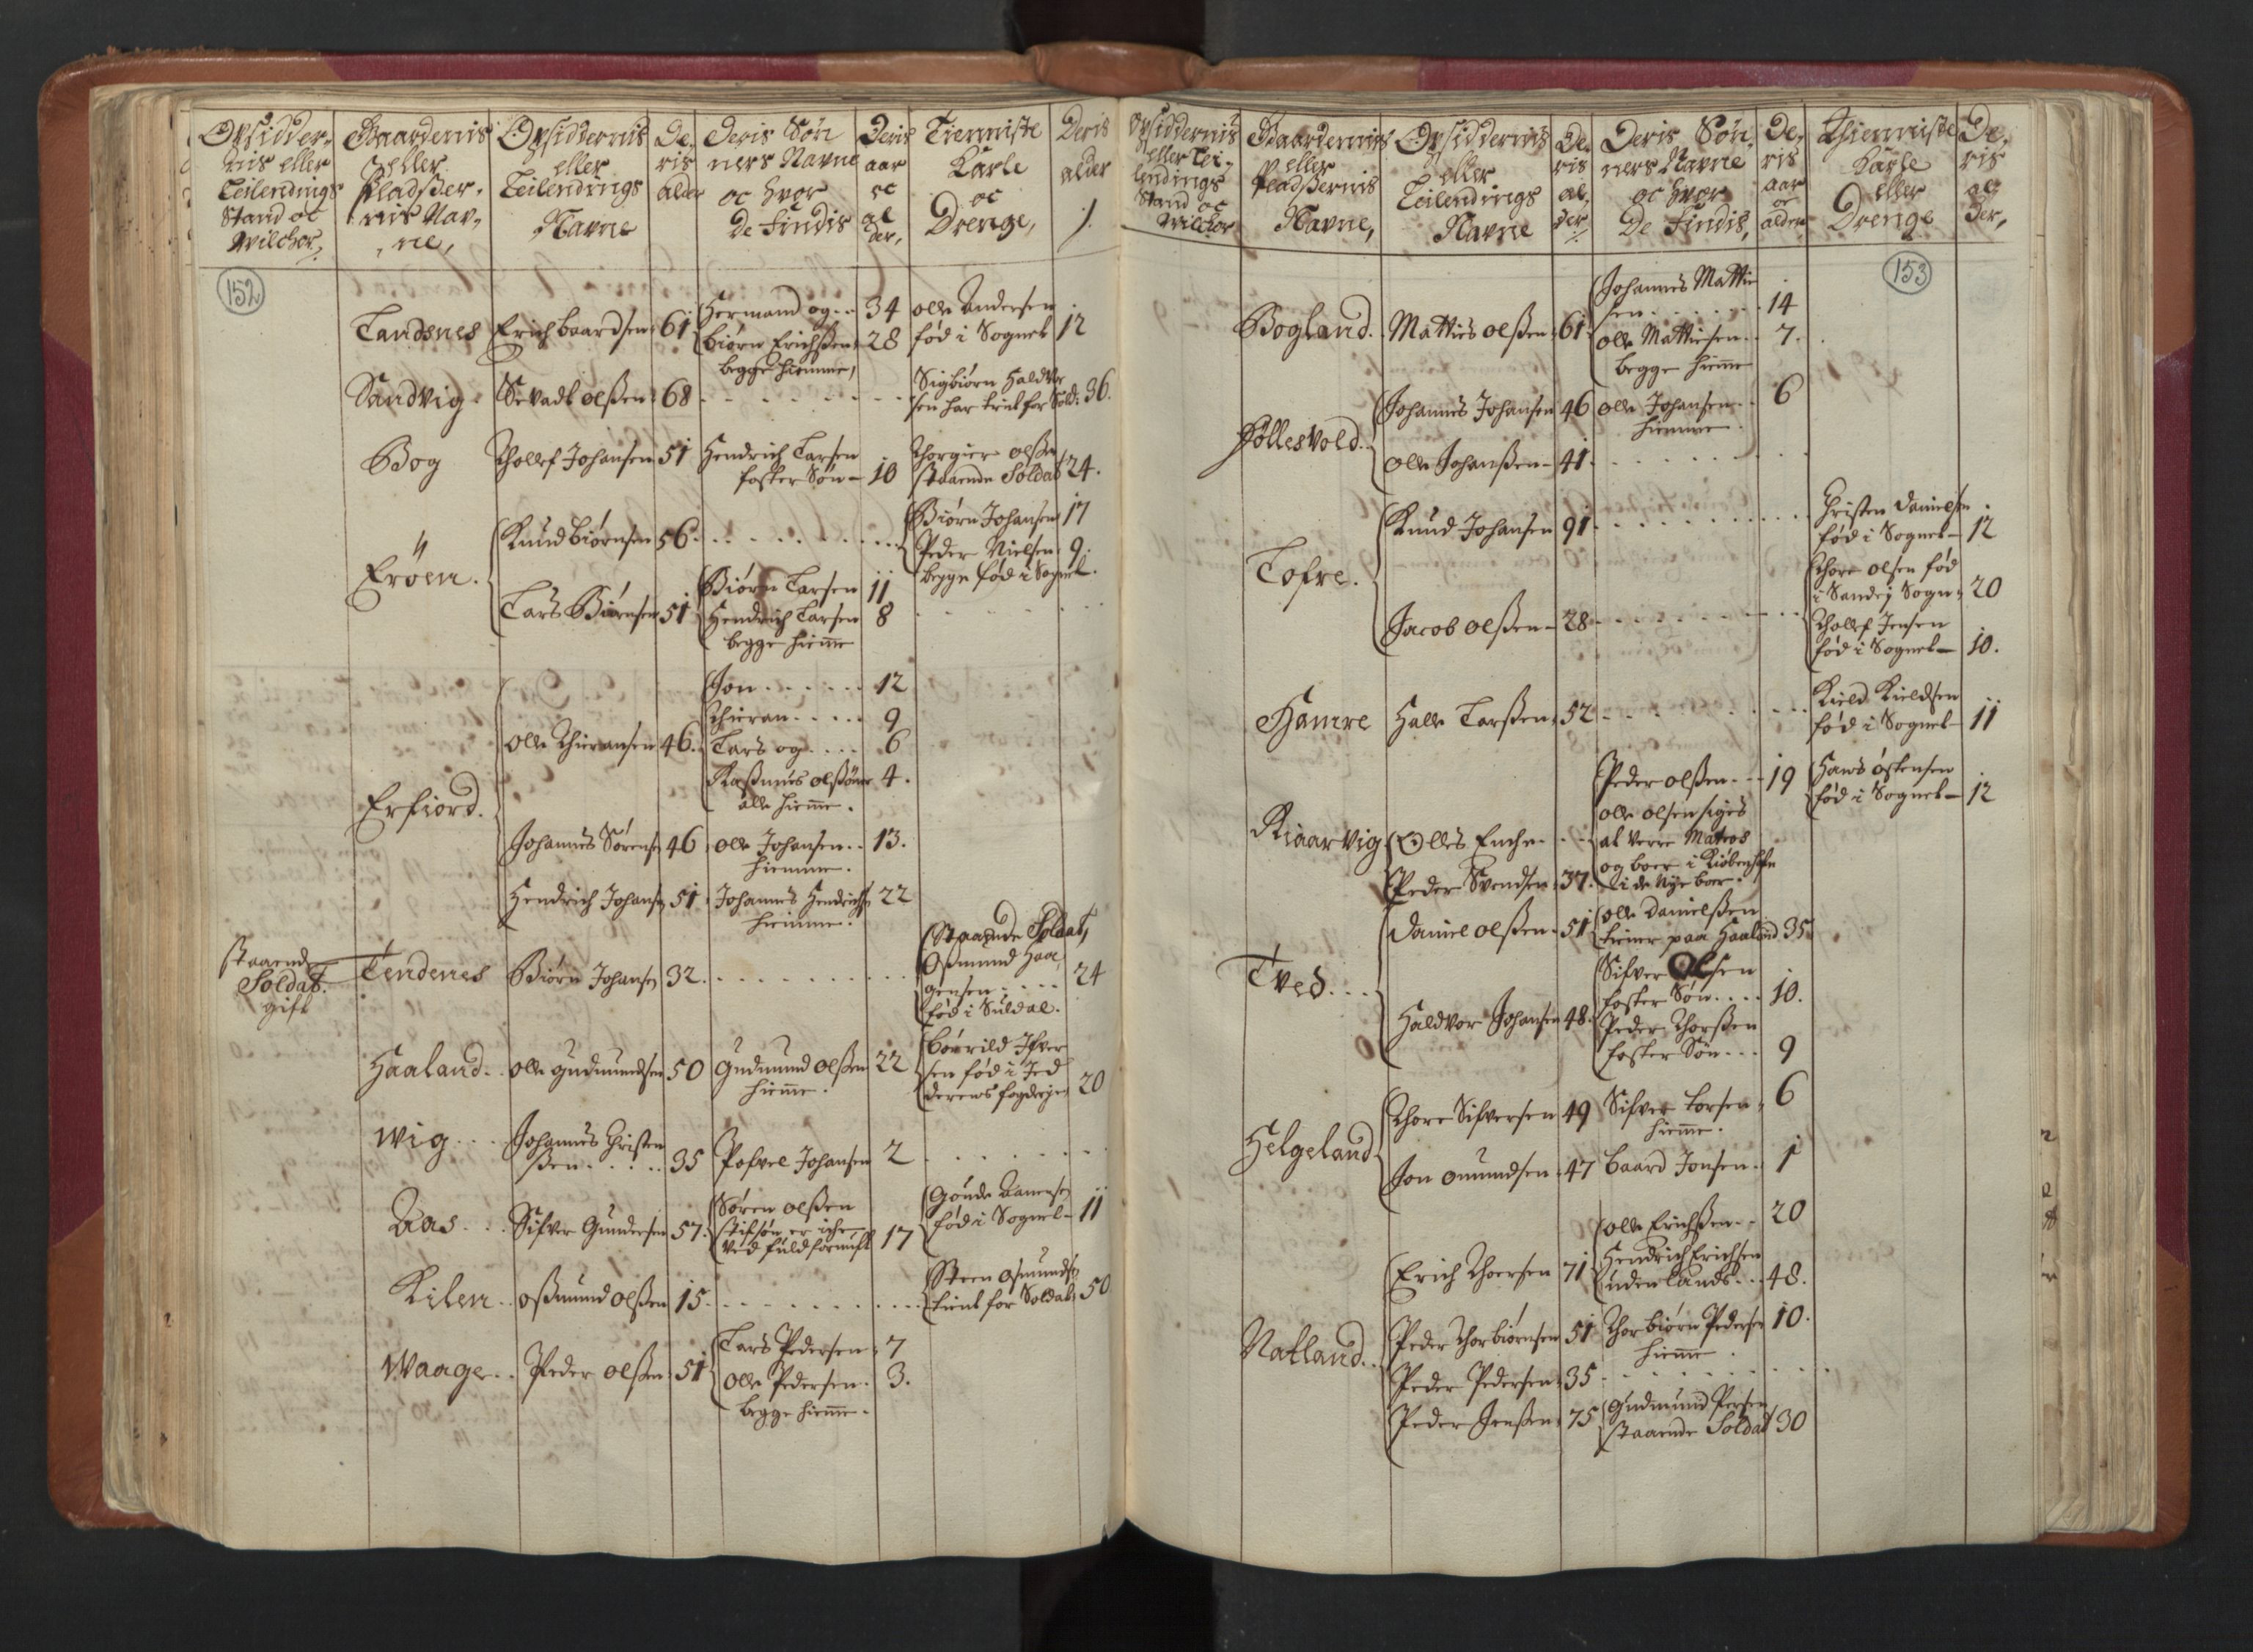 Opsidder-
nis eller
Leilendings
Stand oc
Wilchor,
Gaardernis
eller
Pladsser-
nis Nav-
ne,
Opsiddernis
eller
Leilendings
Navne
De-
ris
alder
Deris Søn
ners Navne
oc hvor
De findis
Deris
aar
oc
al
der,
Tienniste
Karle
oc
Drenge,
Deris
alder
152
Landsnes Erich baardsen 61 Hermand og 34 olle Andersen
biørn Erichsen 28 fød i Sognet 12
begge hiemme,
Sandvig Sevadt olßen 68 Sigbiørn Haldvor
sen har tient for Sold: 36.
Bog Thollef Johansen 51 Hendrich Larsen Thorgier olßen
foster Søn 10 staaende Soldat 24.
Erøen. Knud biørnsen 56. Biørn Johansen 17
Peder Nielsen 9.
begge fød i Sognet.
Lars Biørnsen 51 Biørn Larsen 11
Hendrich Larsen 8
begge hiemme
Erfiord. Olle Thieransen 46. Jon 12
Thieran 9
Lars og 6
Rasmus olsøner 4.
alle hiemme.
Johannes Sørens 46 olle Johansen 13.
hiemme.
Hendrich Johans 51 Johannes Hendrichs 22
hiemme.
staaende
Soldat.
gift
Tendenes Biørn Johansen 32. Staaende Soldat,
Oßmund Haa
gensen 24
fød i Suldal.
Haaland olle gudmundsen 50 Gudmund olßen 22
hiemme.
Bourild Ifver
sen fød i Jed
derens fogderje 20
Wig Johannes Christen
ßen 35 Pofvel Johansen 2
Aas Sifver Gundersen 57. Søren olßen
stifsøn er iche
ved fuld fornuft 17
Goude Aanensen
fød i Sognet 11
Kilen oßmund olßen 15. Steen osmunds
tient for Soldat 50
Waage Peder olßen 51 Lars Pedersen 7
Olle Pedersen 3.
begge hiemme.
Opsiddernis
eller Lei-
lendings
Stand oc
Wilchor
Gaardernis
eller
Pladßernis
Navne,
Opsiddernis
eller
Leilendings
Navne
De-
ris
al
der
Deris Søn
ners Navne
oc hvor
De findis,
De-
ris
aar
oc
alder
Thienniste
Karle
eller
Drenge
De-
ris
al
der,
153
Bogland. Mathies olßen 61. Johannes Matthie
sen 14
olle Mathiesen 7.
begge hiemme
Høllesvold. Johannes Johansen 46 olle Johansen 6
hiemme.
Olle Johanßen 41.
Tofre. Knud Johansen 91 Christen Danielsen
fød i Sognet 12
Jacob olßen 28 Thore olsen fød
i Sandej Sogn 20
Thollef Jensen
fød i Sognet 10.
Hamre Halle Larßen 52 Kield Kieldsen
fød i Sognet 11
Kiaarvig Olles Enche Peder olßen 19
olle olsen siges
at verre Matros
og boer i Kiøbenhafn
i de Nye boer.
Hans Østensen
fød i Sognet 12
Peder Svendsen 37.
Tved Daniel olßen 51 olle Danielßen
tiener paa Haaland 35.
Haldvor Johansen 48. Sifver Olsen
foster Søn 10.
Peder Thorßen
foster Søn 9
Helgeland Thore Sifversen 49 Sifver torsen 6
hiemme.
Jon omundsen 47 baard Jonsen 1
Natland. Erich Thorsen 71 olle Erichßen 20
Hendrich Erichsen
udenlands 48.
Peder Thorbiørnsen 51 Thorbiørn Pedersen 10.
hiemme.
Peder Pedersen 35
Peder Jenßen 75 Gudmund Persen
staaende Soldat 30